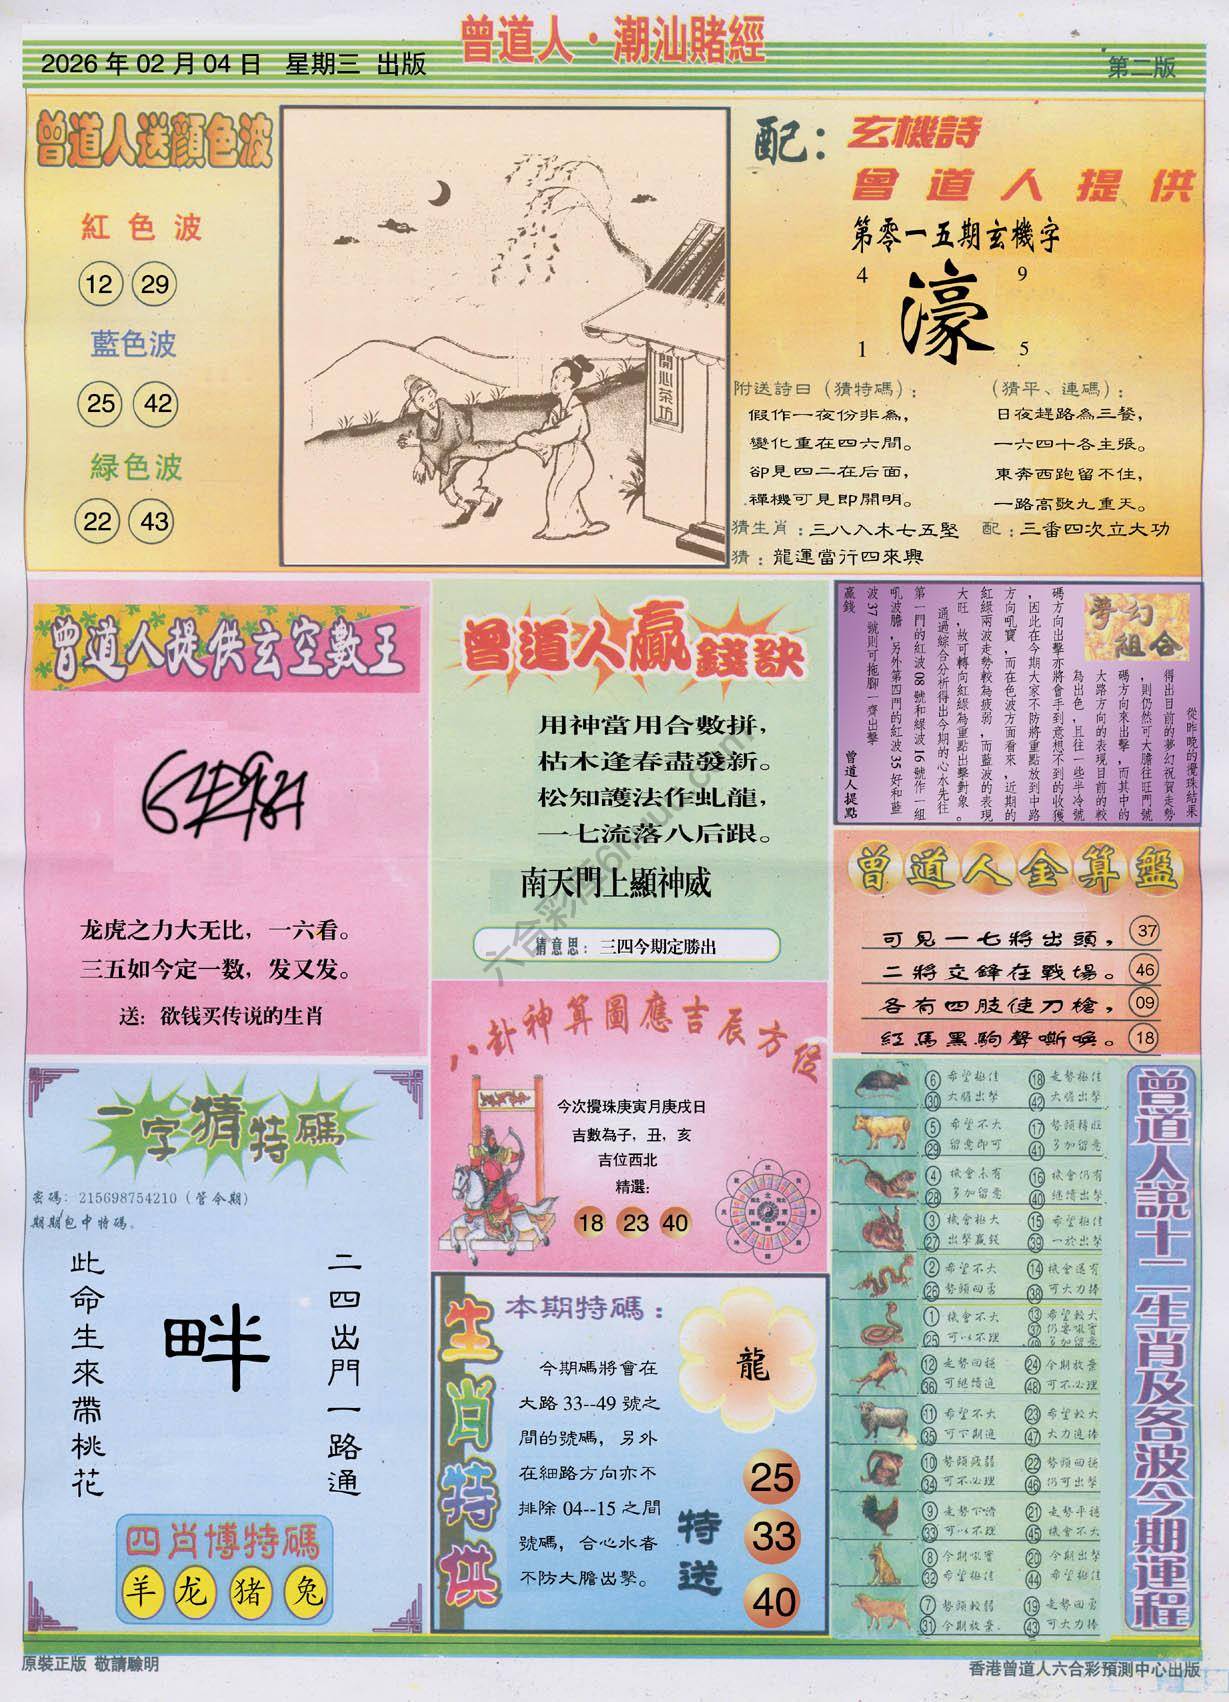 曾道人·潮汕賭經
2026 年 02 月 04 日 星期三 出版
第二版
曾道人送顏色波
紅色波
12 29
藍色波
25 42
緑色波
22 43
開心茶坊
配：玄機詩
曾道人提供
第零一五期玄機字
4 9
濠
1 5
附送詩曰（猜特碼）：
假作一夜份非為，
變化重在四六間。
卻見四二在后面，
禪機可見即開明。
（猜平、連碼）：
日夜趕路為三餐，
一六四十各主張。
東奔西跑留不住，
一路高歌九重天。
猜生肖：三八入木七五堅
配：三番四次立大功
猜：龍運當行四來興
曾道人提供玄空數王
龙虎之力大无比，一六看。
三五如今定一数，发又发。
送：欲钱买传说的生肖
曾道人贏錢訣
用神當用合數拼，
枯木逢春盡發新。
松知護法作虬龍，
一七流落八后跟。
南天門上顯神威
猜意思：三四今期定勝出
夢幻組合
從昨晚的攪珠結果
得出目前的夢幻祝賀走勢
，則仍然可大膽往旺門號
碼方向來出擊，而其中的
大路方向的表現目前的較
為出色，且往一些半冷號
碼方向出擊亦將會手到意想不到的收獲
，因此在今期大家不防將重點放到中路
方向吼寶，而在色波方面看來，近期的
紅綠兩波走勢較為疲弱，而藍波的表現
大旺，故可轉向紅綠為重點出擊對象。
通過綜合分析得出今期的心水先往
第一門的紅波 08 號和緑波 16 號作一組
吼波膽，另外第四門的紅波 35 好和藍
波 37 號則可拖腳一齊出擊
贏錢
曾道人提點
曾道人金算盤
可見一七將出頭， 37
二將交鋒在戰場。 46
各有四肢使刀槍， 09
紅馬黑駒聲嘶喚。 18
八卦神算圖應吉辰方位
今次攪珠庚寅月庚戌日
吉數為子，丑，亥
吉位西北
精選：
18 23 40
一字猜特碼
密碼：215698754210（管令期）
期期包中特碼。
此命生來帶桃花
畔
二四出門一路通
四肖博特碼
羊 龙 猪 兔
生肖特供
本期特碼：
今期碼將會在
大路 33--49 號之
間的號碼，另外
在細路方向亦不
排除 04--15 之間
號碼，合心水者
不防大膽出擊。
龍
特送
25
33
40
曾道人説十二生肖及各波今期運程
6 希望極佳 18 走勢極佳
30 大膽出擊 42 大膽出擊
5 希望不大 17 勢頭轉旺
29 留意即可 41 多加留意
4 機會未有 16 機會仍有
28 多加留意 40 繼續出擊
3 機會極大 15 希望極佳
27 出擊贏錢 39 一於出擊
2 希望不大 14 機會還有
26 勢頭回勇 38 可大力捧
1 機會不大 13 希望較大
25 可以不理 37 仍要吼寶
49 多加留意
12 走勢回穩 24 今期放棄
36 可繼續追 48 可不必理
11 希望不大 23 希望較大
35 可下期追 47 大力追捧
10 勢頭疲弱 22 勢頭回穩
34 可不必理 46 仍可出擊
9 走勢下滑 21 走勢平穩
33 可以不理 45 機會不大
8 今期吼寶 20 今期出擊
32 希望極佳 44 希望極佳
7 勢頭較弱 19 走勢回勇
31 今期放棄 43 可大力捧
原裝正版 敬請驗明
香港曾道人六合彩預測中心出版